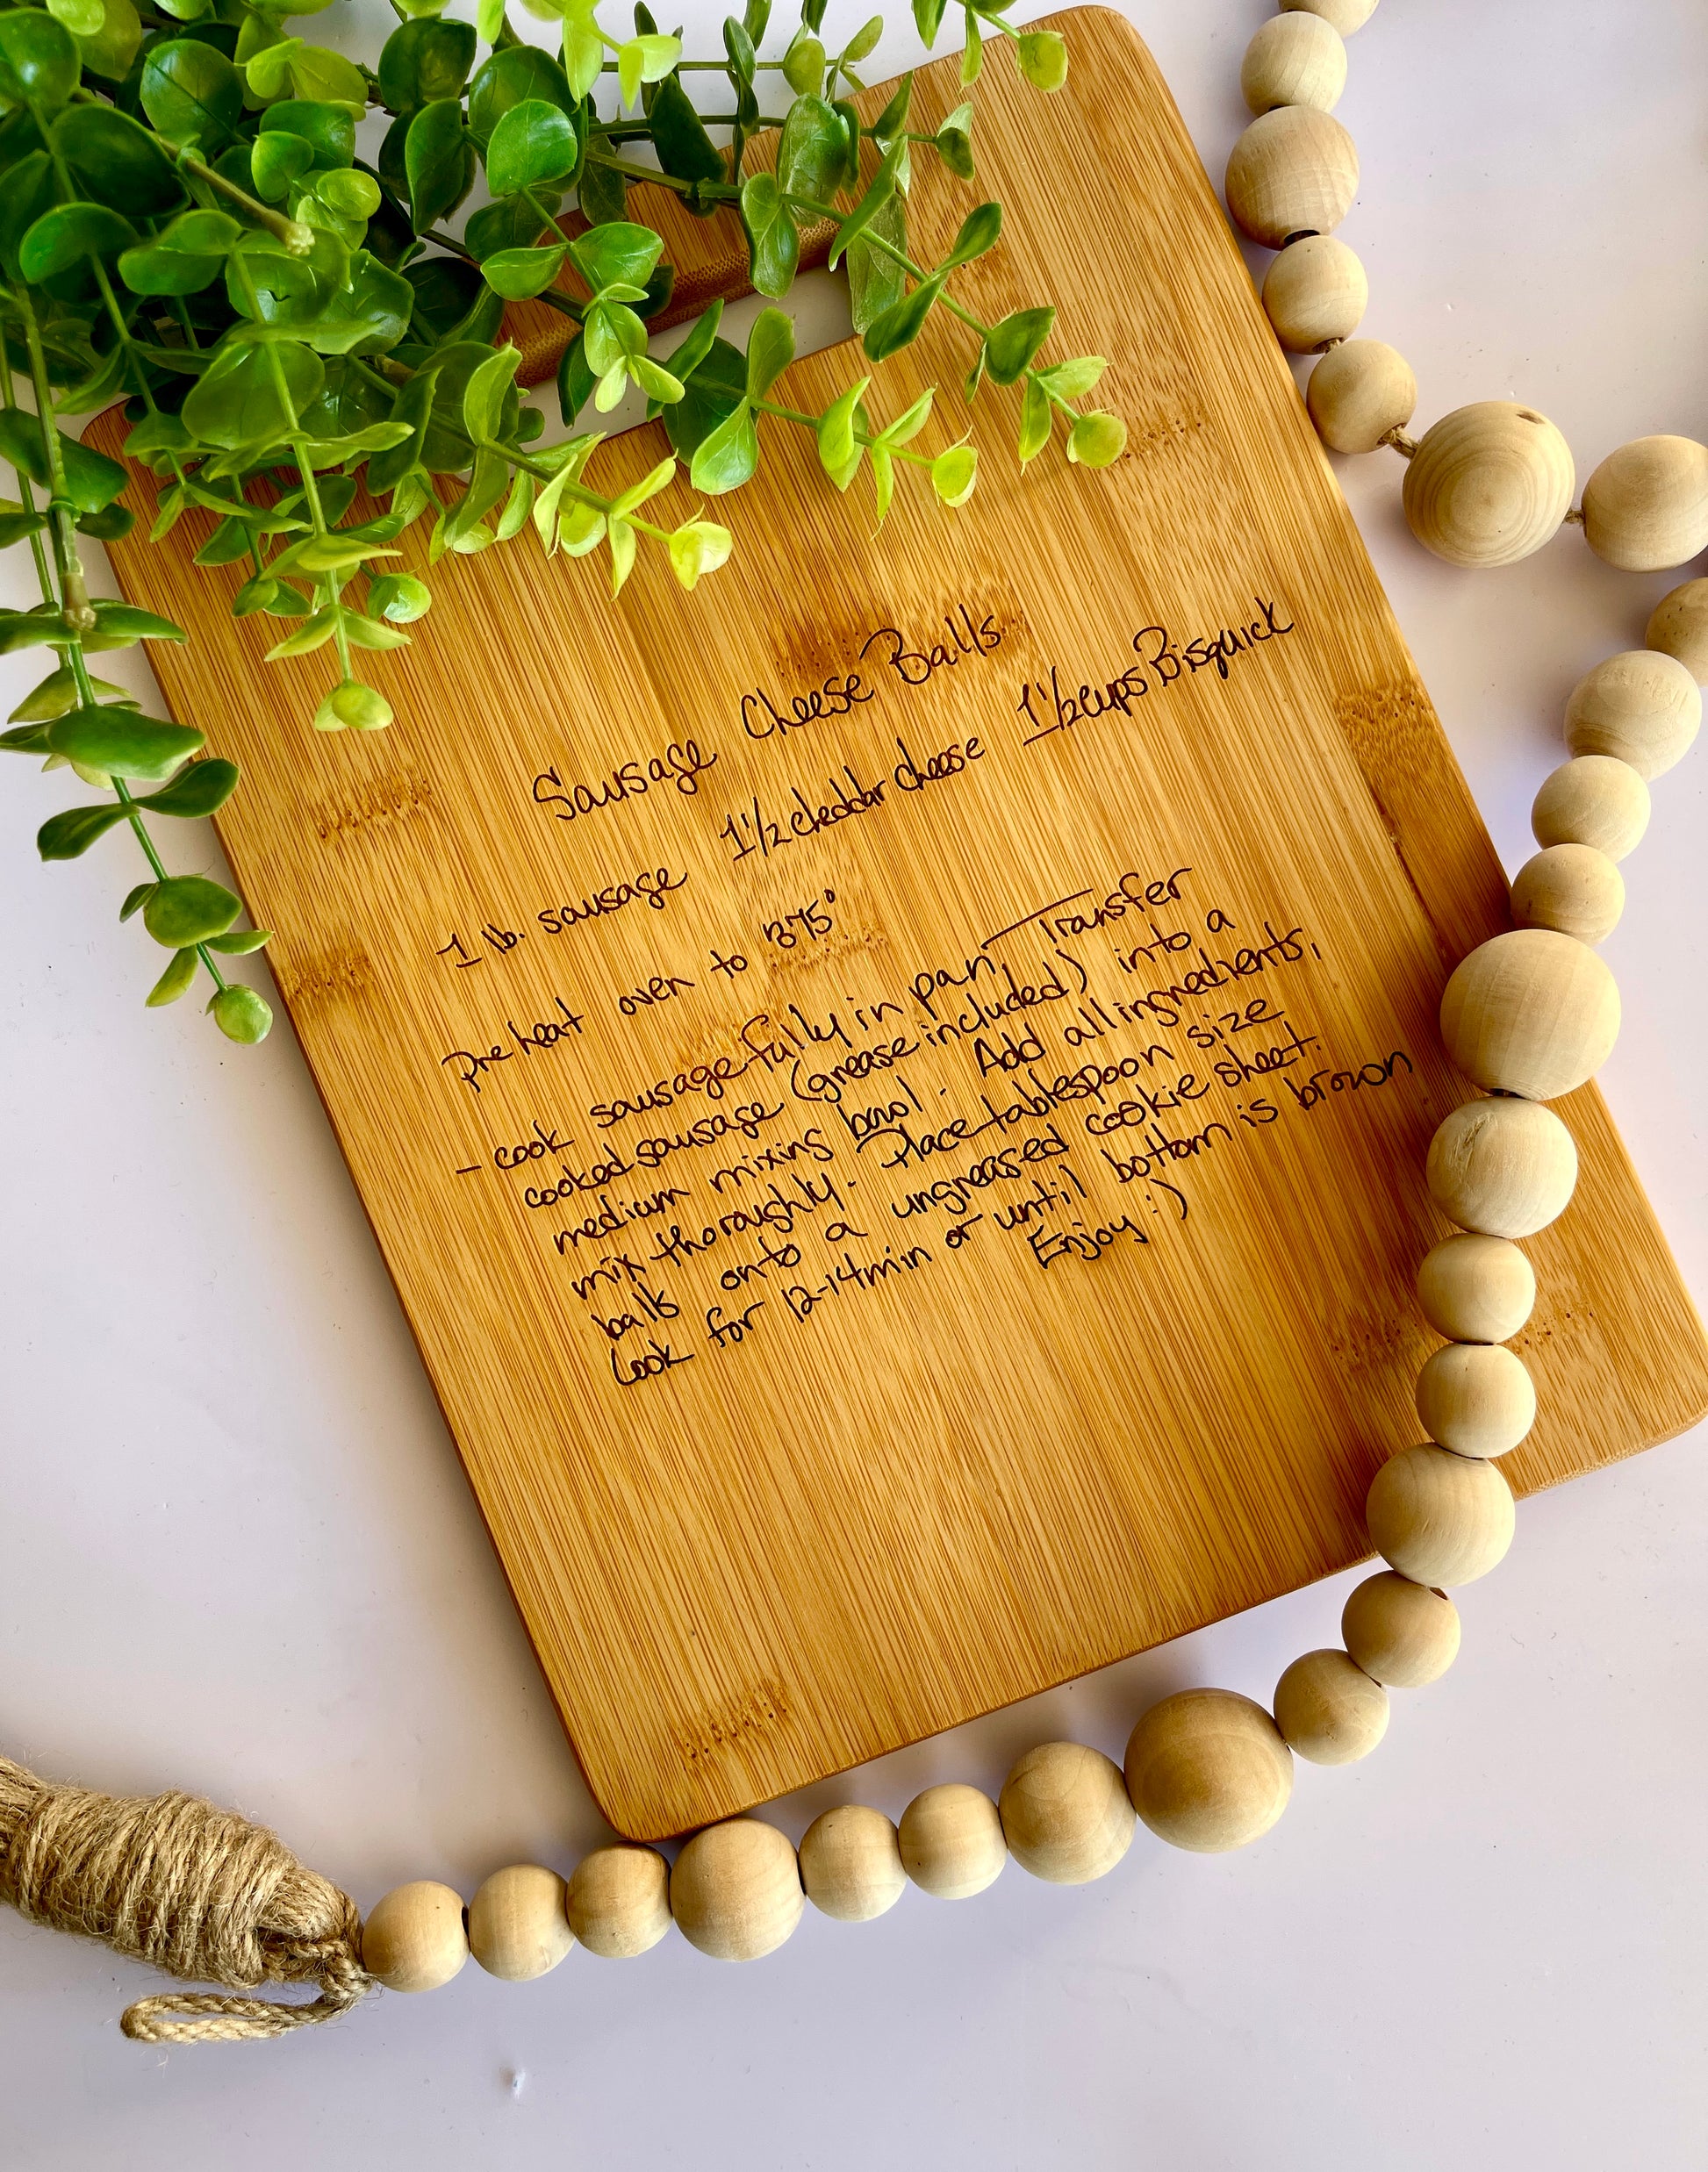 Sausage Cheese Balls
1 lb. sausage 1 1/2 cheddar cheese 1 1/2 cups Bisquick
Preheat oven to 375°
- cook sausage fully in pan, Transfer
cooked sausage (grease included) into a
medium mixing bowl. Add all ingredients,
mix thoroughly. Place tablespoon size
balls onto a ungreased cookie sheet.
Cook for 12-14min or until bottom is brown
Enjoy :)